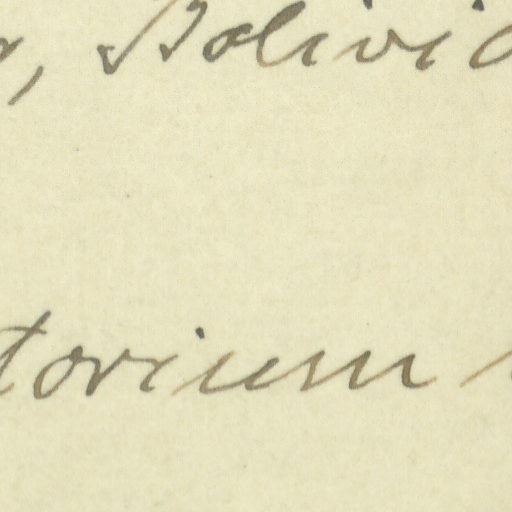 , Bolivia
torium